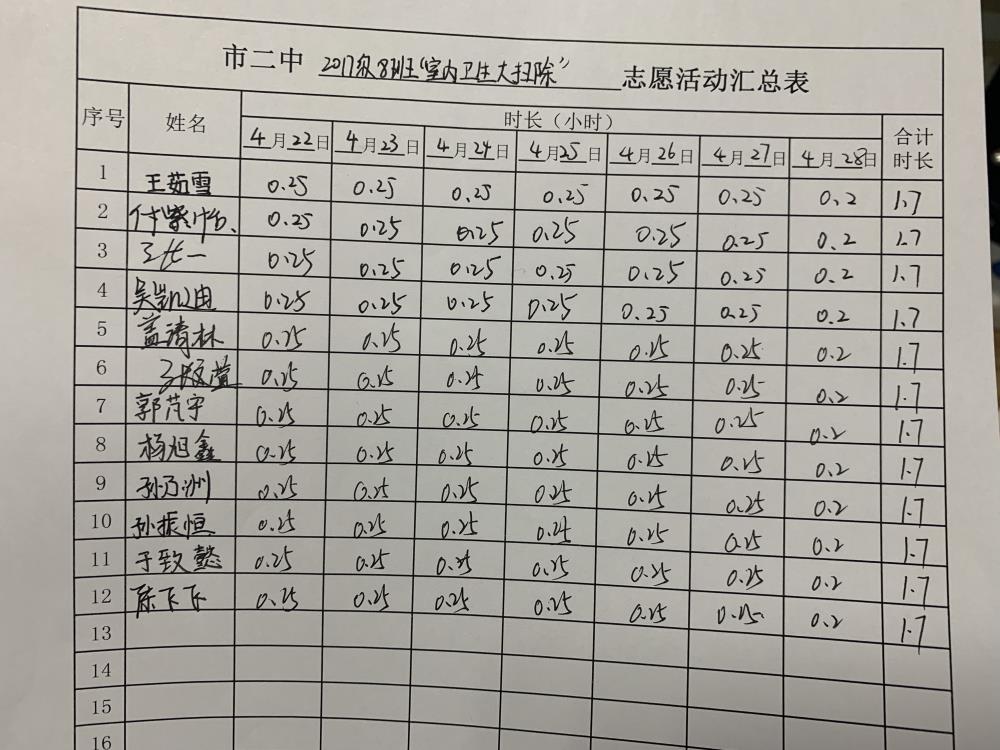 市二中 2017级8班"室内卫生大扫除" 志愿活动汇总表
序号 姓名 时长(小时) 合计时长
4月22日 4月23日 4月24日 4月25日 4月26日 4月27日 4月28日
1 王茹雪 0.25 0.25 0.25 0.25 0.25 0.25 0.2 1.7
2 0.25 0.25 0.25 0.25 0.25 0.25 0.2 1.7
3 0.25 0.25 0.25 0.25 0.25 0.25 0.2 1.7
4 吴凯迪 0.25 0.25 0.25 0.25 0.25 0.25 0.2 1.7
5 盖清林 0.25 0.25 0.25 0.25 0.25 0.25 0.2 1.7
6 0.25 0.25 0.25 0.25 0.25 0.25 0.2 1.7
7 郭芃宇 0.25 0.25 0.25 0.25 0.25 0.25 0.2 1.7
8 杨旭鑫 0.25 0.25 0.25 0.25 0.25 0.25 0.2 1.7
9 孙乃洲 0.25 0.25 0.25 0.25 0.25 0.25 0.2 1.7
10 孙振恒 0.25 0.25 0.25 0.25 0.25 0.25 0.2 1.7
11 于致懿 0.25 0.25 0.25 0.25 0.25 0.25 0.2 1.7
12 陈飞飞 0.25 0.25 0.25 0.25 0.25 0.25 0.2 1.7
13
14
15
16